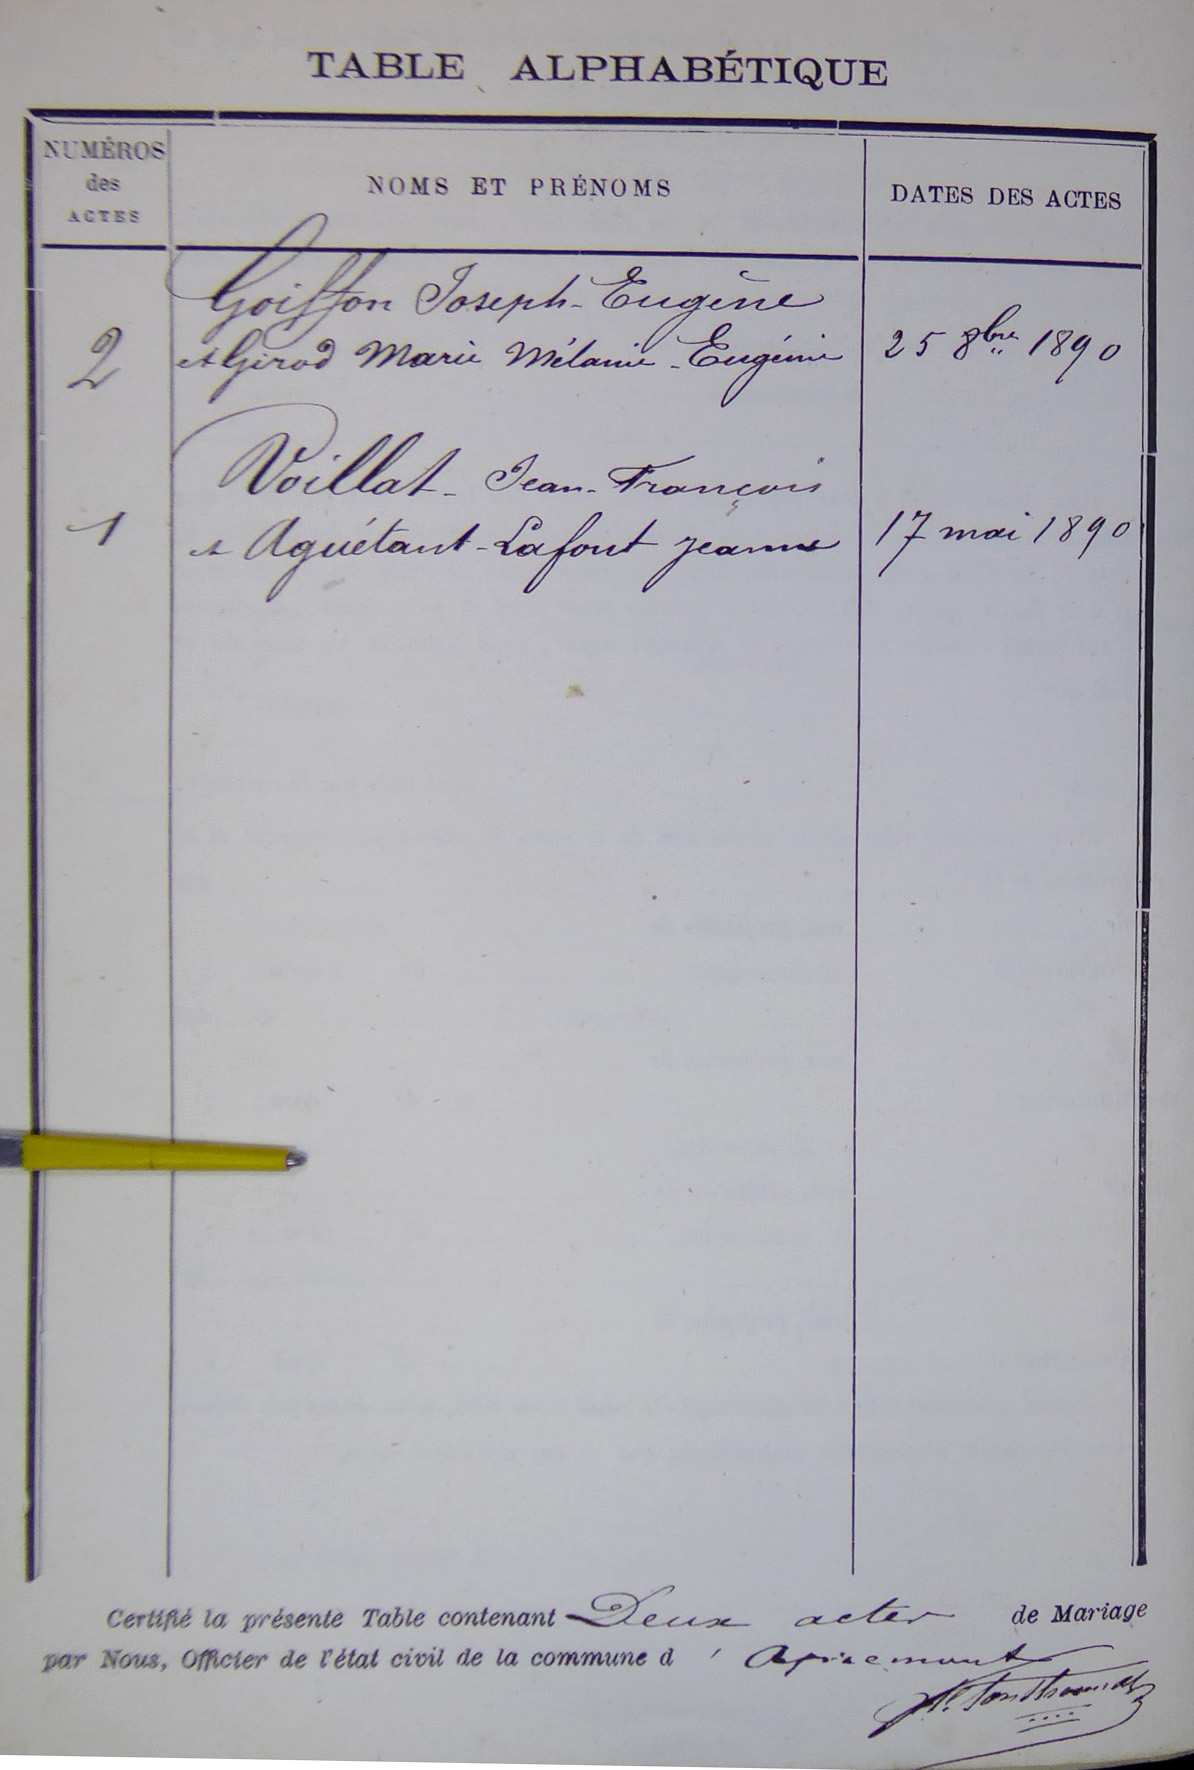 TABLE ALPHABÉTIQUE
NUMÉROS
des
ACTES
NOMS ET PRÉNOMS
DATES DES ACTES
Goiffon Joseph-Eugène
2 et Girod Marie Mélanie-Eugénie 25 8bre 1890
Voillat-Jean-François
1 et Aguétant-Lafont Jeanne 17 mai 1890
Certifié la présente Table contenant Deux actes de Mariage
par Nous, Officier de l'état civil de la commune d'Apremont